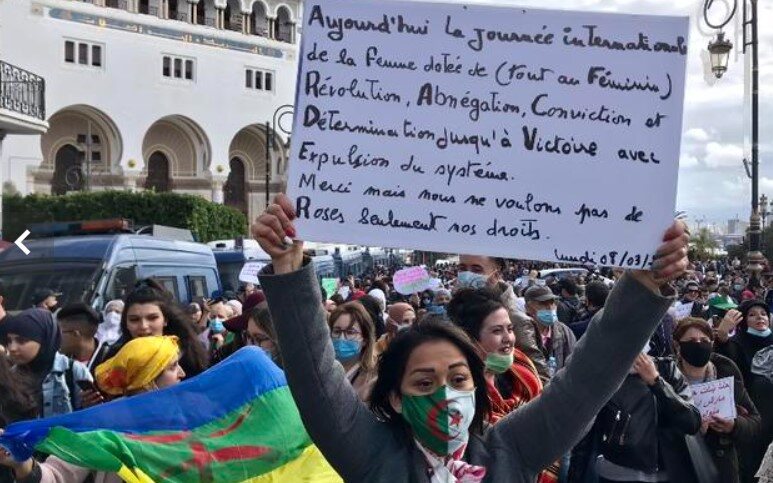 Aujourd'hui la journée internationale
de la femme dotée de (tout au Féminin)
Révolution, Abnégation, Conviction et
Détermination jusqu'à Victoire avec
Expulsion du système.
Merci mais nous ne voulons pas de
Roses seulement nos droits.
Lundi 08/03/